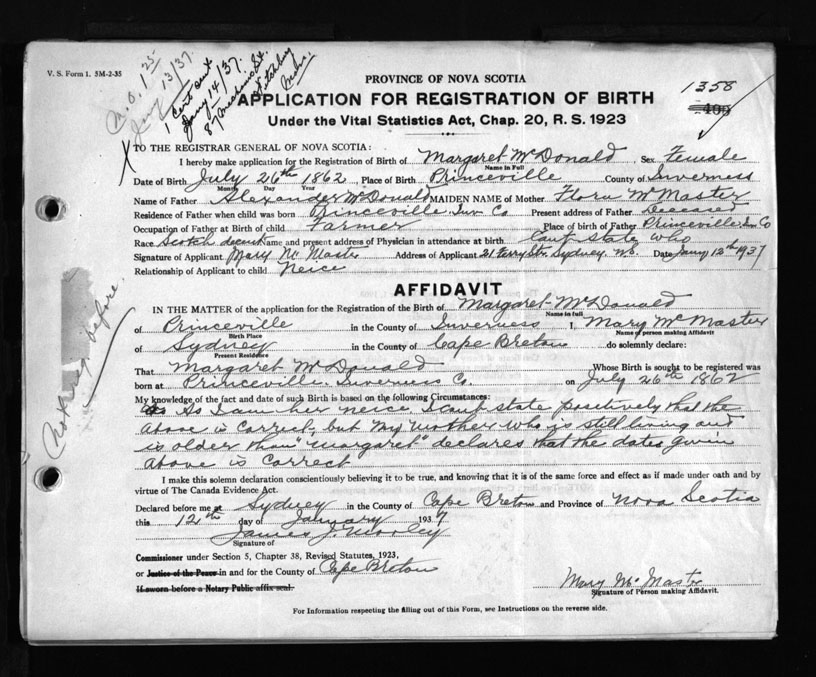 V. S. Form 1. 5M-2-35
M.O. 1 25
Jany 13/37.
1 Cert sent
Jany 14/37.
87
Mass.
PROVINCE OF NOVA SCOTIA
1358
APPLICATION FOR REGISTRATION OF BIRTH
Under the Vital Statistics Act, Chap. 20, R. S. 1923
TO THE REGISTRAR GENERAL OF NOVA SCOTIA:
I hereby make application for the Registration of Birth of Margaret McDonald, Sex Female
Name in Full
Date of Birth July 26th 1862, Place of Birth Princeville County of Inverness
Month Day Year
Name of Father Alexander McDonald MAIDEN NAME of Mother Flora McMaster
Residence of Father when child was born Princeville Inv Co Present address of Father Deceased
Occupation of Father at Birth of child Farmer Place of birth of Father Princeville, Inv Co
Race Scotch decent Name and present address of Physician in attendance at birth Cant state who
Signature of Applicant Mary McMaster Address of Applicant 21 Ferry Str. Sydney. N.S. Date Jany 12th 1937
Relationship of Applicant to child Neice
AFFIDAVIT
IN THE MATTER of the application for the Registration of the Birth of Margaret McDonald
Name in full
of Princeville in the County of Inverness I, Mary McMaster
Birth Place Name of person making Affidavit
of Sydney in the County of Cape Breton do solemnly declare:
Present Residence
That Margaret McDonald Whose Birth is sought to be registered was
born at Princeville. Inverness Co. on July 26th 1862
My knowledge of the fact and date of such Birth is based on the following Circumstances:
As I am her neice. I cant state positively that the
above is correct, but "My Mother who is still living and
is older than" "Margaret" declares that the dates given
above is correct
I make this solemn declaration conscientiously believing it to be true, and knowing that it is of the same force and effect as if made under oath and by
virtue of The Canada Evidence Act.
Declared before me at Sydney in the County of Cape Breton and Province of Nova Scotia
this 12th day of January 1937
James J.
Signature of
Commissioner under Section 5, Chapter 38, Revised Statutes, 1923,
or Justice of the Peace in and for the County of Cape Breton
If sworn before a Notary Public affix seal.
Mary McMaster
Signature of Person making Affidavit.
For Information respecting the filling out of this Form, see Instructions on the reverse side.
before.